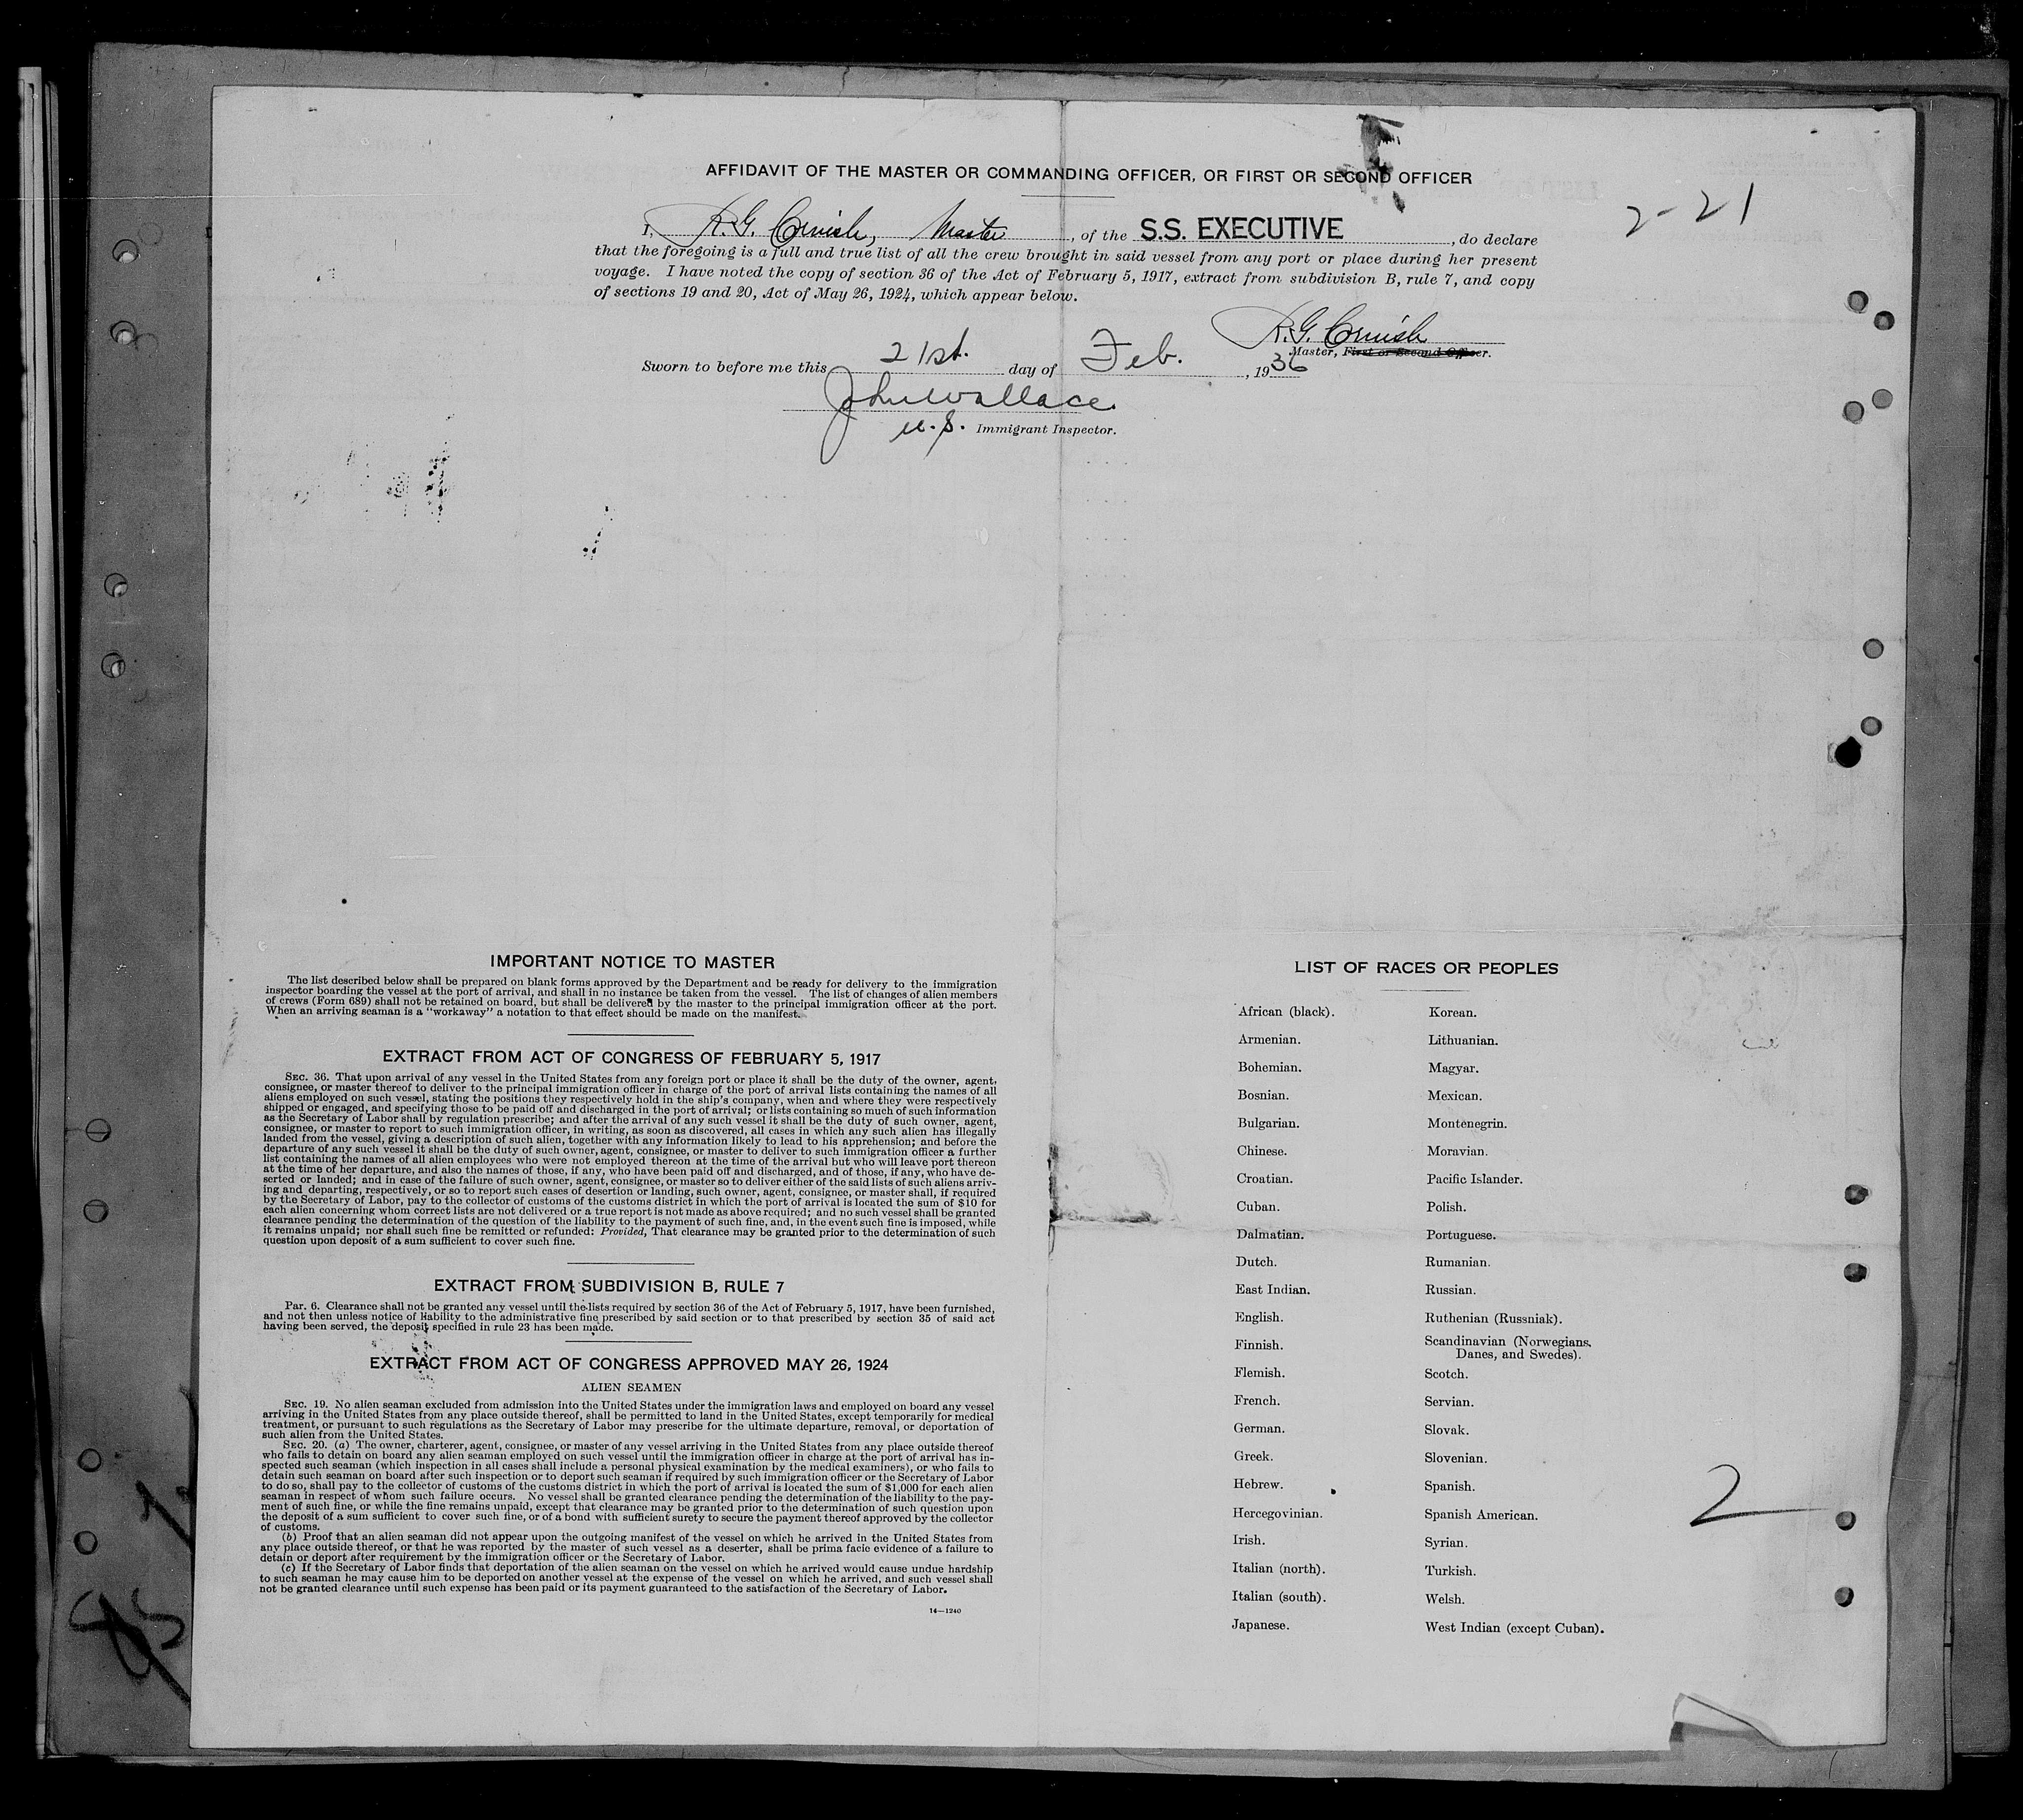 AFFIDAVIT OF THE MASTER OR COMMANDING OFFICER, OR FIRST OR SECOND OFFICER
2-21
I, R.G. Cornish, Master, of the S.S. EXECUTIVE, do declare
that the foregoing is a full and true list of all the crew brought in said vessel from any port or place during her present
voyage. I have noted the copy of section 36 of the Act of February 5, 1917, extract from subdivision B, rule 7, and copy
of sections 19 and 20, Act of May 26, 1924, which appear below.
R.G. Cornish
Master, First or Second Officer.
Sworn to before me this 21st. day of Feb., 1936
John Wallace
U.S. Immigrant Inspector.
IMPORTANT NOTICE TO MASTER
The list described below shall be prepared on blank forms approved by the Department and be ready for delivery to the immigration
inspector boarding the vessel at the port of arrival, and shall in no instance be taken from the vessel. The list of changes of alien members
of crews (Form 689) shall not be retained on board, but shall be delivered by the master to the principal immigration officer at the port.
When an arriving seaman is a "workaway" a notation to that effect should be made on the manifest.
EXTRACT FROM ACT OF CONGRESS OF FEBRUARY 5, 1917
SEC. 36. That upon arrival of any vessel in the United States from any foreign port or place it shall be the duty of the owner, agent,
consignee, or master thereof to deliver to the principal immigration officer in charge of the port of arrival lists containing the names of all
aliens employed on such vessel, stating the positions they respectively hold in the ship's company, when and where they were respectively
shipped or engaged, and specifying those to be paid off and discharged in the port of arrival; or lists containing so much of such information
as the Secretary of Labor shall by regulation prescribe; and after the arrival of any such vessel it shall be the duty of such owner, agent,
consignee, or master to report to such immigration officer, in writing, as soon as discovered, all cases in which any such alien has illegally
landed from the vessel, giving a description of such alien, together with any information likely to lead to his apprehension; and before the
departure of any such vessel it shall be the duty of such owner, agent, consignee, or master to deliver to such immigration officer a further
list containing the names of all alien employees who were not employed thereon at the time of the arrival but who will leave port thereon
at the time of her departure, and also the names of those, if any, who have been paid off and discharged, and of those, if any, who have de-
serted or landed; and in case of the failure of such owner, agent, consignee, or master so to deliver either of the said lists of such aliens arriv-
ing and departing, respectively, or so to report such cases of desertion or landing, such owner, agent, consignee, or master shall, if required
by the Secretary of Labor, pay to the collector of customs of the customs district in which the port of arrival is located the sum of $10 for
each alien concerning whom correct lists are not delivered or a true report is not made as above required; and no such vessel shall be granted
clearance pending the determination of the question of the liability to the payment of such fine, and, in the event such fine is imposed, while
it remains unpaid; nor shall such fine be remitted or refunded: Provided, That clearance may be granted prior to the determination of such
question upon deposit of a sum sufficient to cover such fine.
EXTRACT FROM SUBDIVISION B, RULE 7
Par. 6. Clearance shall not be granted any vessel until the lists required by section 36 of the Act of February 5, 1917, have been furnished,
and not then unless notice of liability to the administrative fine prescribed by said section or to that prescribed by section 35 of said act
having been served, the deposit specified in rule 23 has been made.
EXTRACT FROM ACT OF CONGRESS APPROVED MAY 26, 1924
ALIEN SEAMEN
SEC. 19. No alien seaman excluded from admission into the United States under the immigration laws and employed on board any vessel
arriving in the United States from any place outside thereof, shall be permitted to land in the United States, except temporarily for medical
treatment, or pursuant to such regulations as the Secretary of Labor may prescribe for the ultimate departure, removal, or deportation of
such alien from the United States.
SEC. 20. (a) The owner, charterer, agent, consignee, or master of any vessel arriving in the United States from any place outside thereof
who fails to detain on board any alien seaman employed on such vessel until the immigration officer in charge at the port of arrival has in-
spected such seaman (which inspection in all cases shall include a personal physical examination by the medical examiners), or who fails to
detain such seaman on board after such inspection or to deport such seaman if required by such immigration officer or the Secretary of Labor
to do so, shall pay to the collector of customs of the customs district in which the port of arrival is located the sum of $1,000 for each alien
seaman in respect of whom such failure occurs. No vessel shall be granted clearance pending the determination of the liability to the pay-
ment of such fine, or while the fine remains unpaid, except that clearance may be granted prior to the determination of such question upon
the deposit of a sum sufficient to cover such fine, or of a bond with sufficient surety to secure the payment thereof approved by the collector
of customs.
(b) Proof that an alien seaman did not appear upon the outgoing manifest of the vessel on which he arrived in the United States from
any place outside thereof, or that he was reported by the master of such vessel as a deserter, shall be prima facie evidence of a failure to
detain or deport after requirement by the immigration officer or the Secretary of Labor.
(c) If the Secretary of Labor finds that deportation of the alien seaman on the vessel on which he arrived would cause undue hardship
to such seaman he may cause him to be deported on another vessel at the expense of the vessel on which he arrived, and such vessel shall
not be granted clearance until such expense has been paid or its payment guaranteed to the satisfaction of the Secretary of Labor.
14—1240
LIST OF RACES OR PEOPLES
African (black).
Armenian.
Bohemian.
Bosnian.
Bulgarian.
Chinese.
Croatian.
Cuban.
Dalmatian.
Dutch.
East Indian.
English.
Finnish.
Flemish.
French.
German.
Greek.
Hebrew.
Hercegovinian.
Irish.
Italian (north).
Italian (south).
Japanese.
Korean.
Lithuanian.
Magyar.
Mexican.
Montenegrin.
Moravian.
Pacific Islander.
Polish.
Portuguese.
Rumanian.
Russian.
Ruthenian (Russniak).
Scandinavian (Norwegians,
Danes, and Swedes).
Scotch.
Servian.
Slovak.
Slovenian.
Spanish.
Spanish American.
Syrian.
Turkish.
Welsh.
West Indian (except Cuban).
2